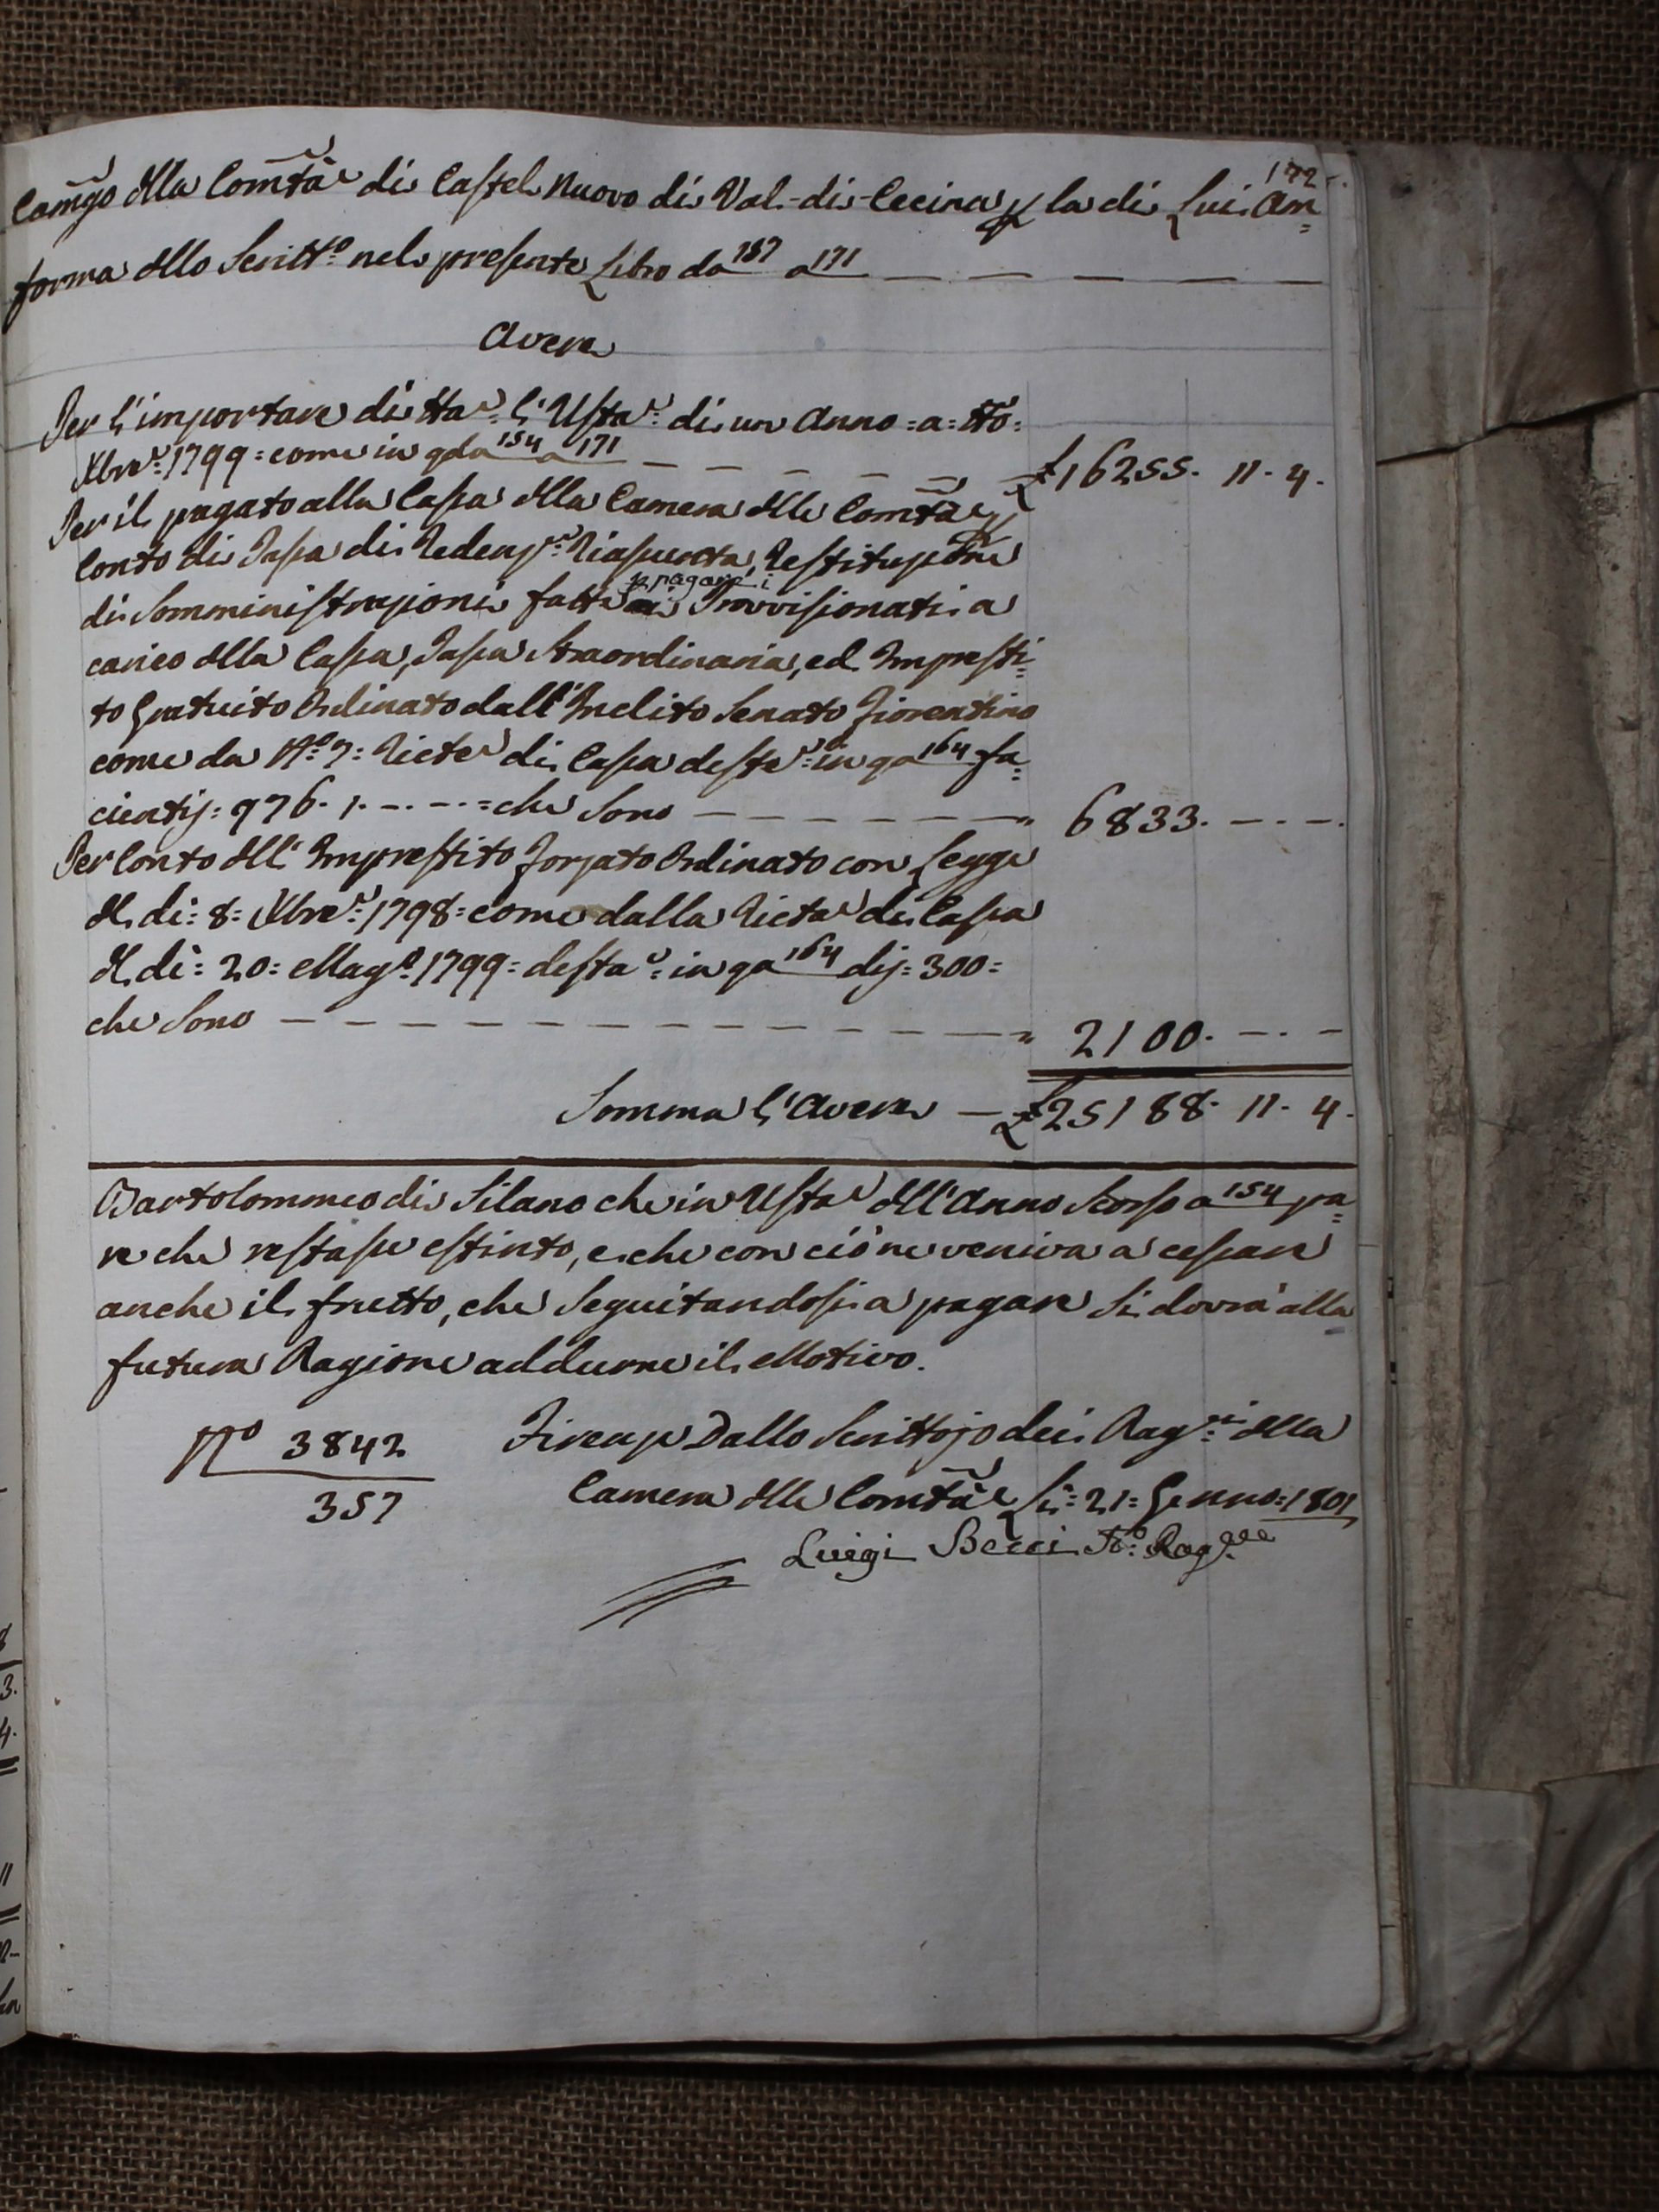 172
Camgo dlla Comtà di Castel Nuovo di Val-di-Cecina p la di Lui Am=
forma dllo Scritto nel presente Libro da 157 a 171
Avere
Per l'importare di tta l'Usta di un Anno =a= tto:
Xbre: 1799= come in qda 154 a 171 £16255. 11. 4.
Per il pagato alla Cassa dlla Camera dlle Comtà p
Conto di Tassa di Redenze Riaspunta, Restituzione
p pagare i
di Somministrazioni fatte Provisionati a
carico dlla Cassa, Tassa Straordinaria, ed Impresti=
to Gratuito Ordinato dall'Inclito Senato Fiorentino
come da No 7= Ricte di Cassa deste: in qa 164 fa=
cienti = 976. 1. -.-.-= che Sono " 6833. -.-.
Per Conto dll'Imprestito Forzato Ordinato con Legge
dl dì= 8= Xbre: 1798= come dalla Ricta di Cassa
dl dì= 20= Mago: 1799= desta: in qa 164 di = 300=
che Sono " 2100. -.-
Somma l'Avere £25188. 11. 4.
Bartolommeo di Silano che in Usta dll'Anno Scorso a 154 pa=
re che restasse estinto, e che con ciò ne veniva a cessare
anche il frutto, che Seguitandosi a pagare Si dovrà alla
futura Ragione addurne il Motivo.
No 3842
357
Firenze Dallo Scrittojo dei Ragri: dlla
Camera dlle Comtà Li= 21= Genno= 1801
Luigi Becci Po: Ragre